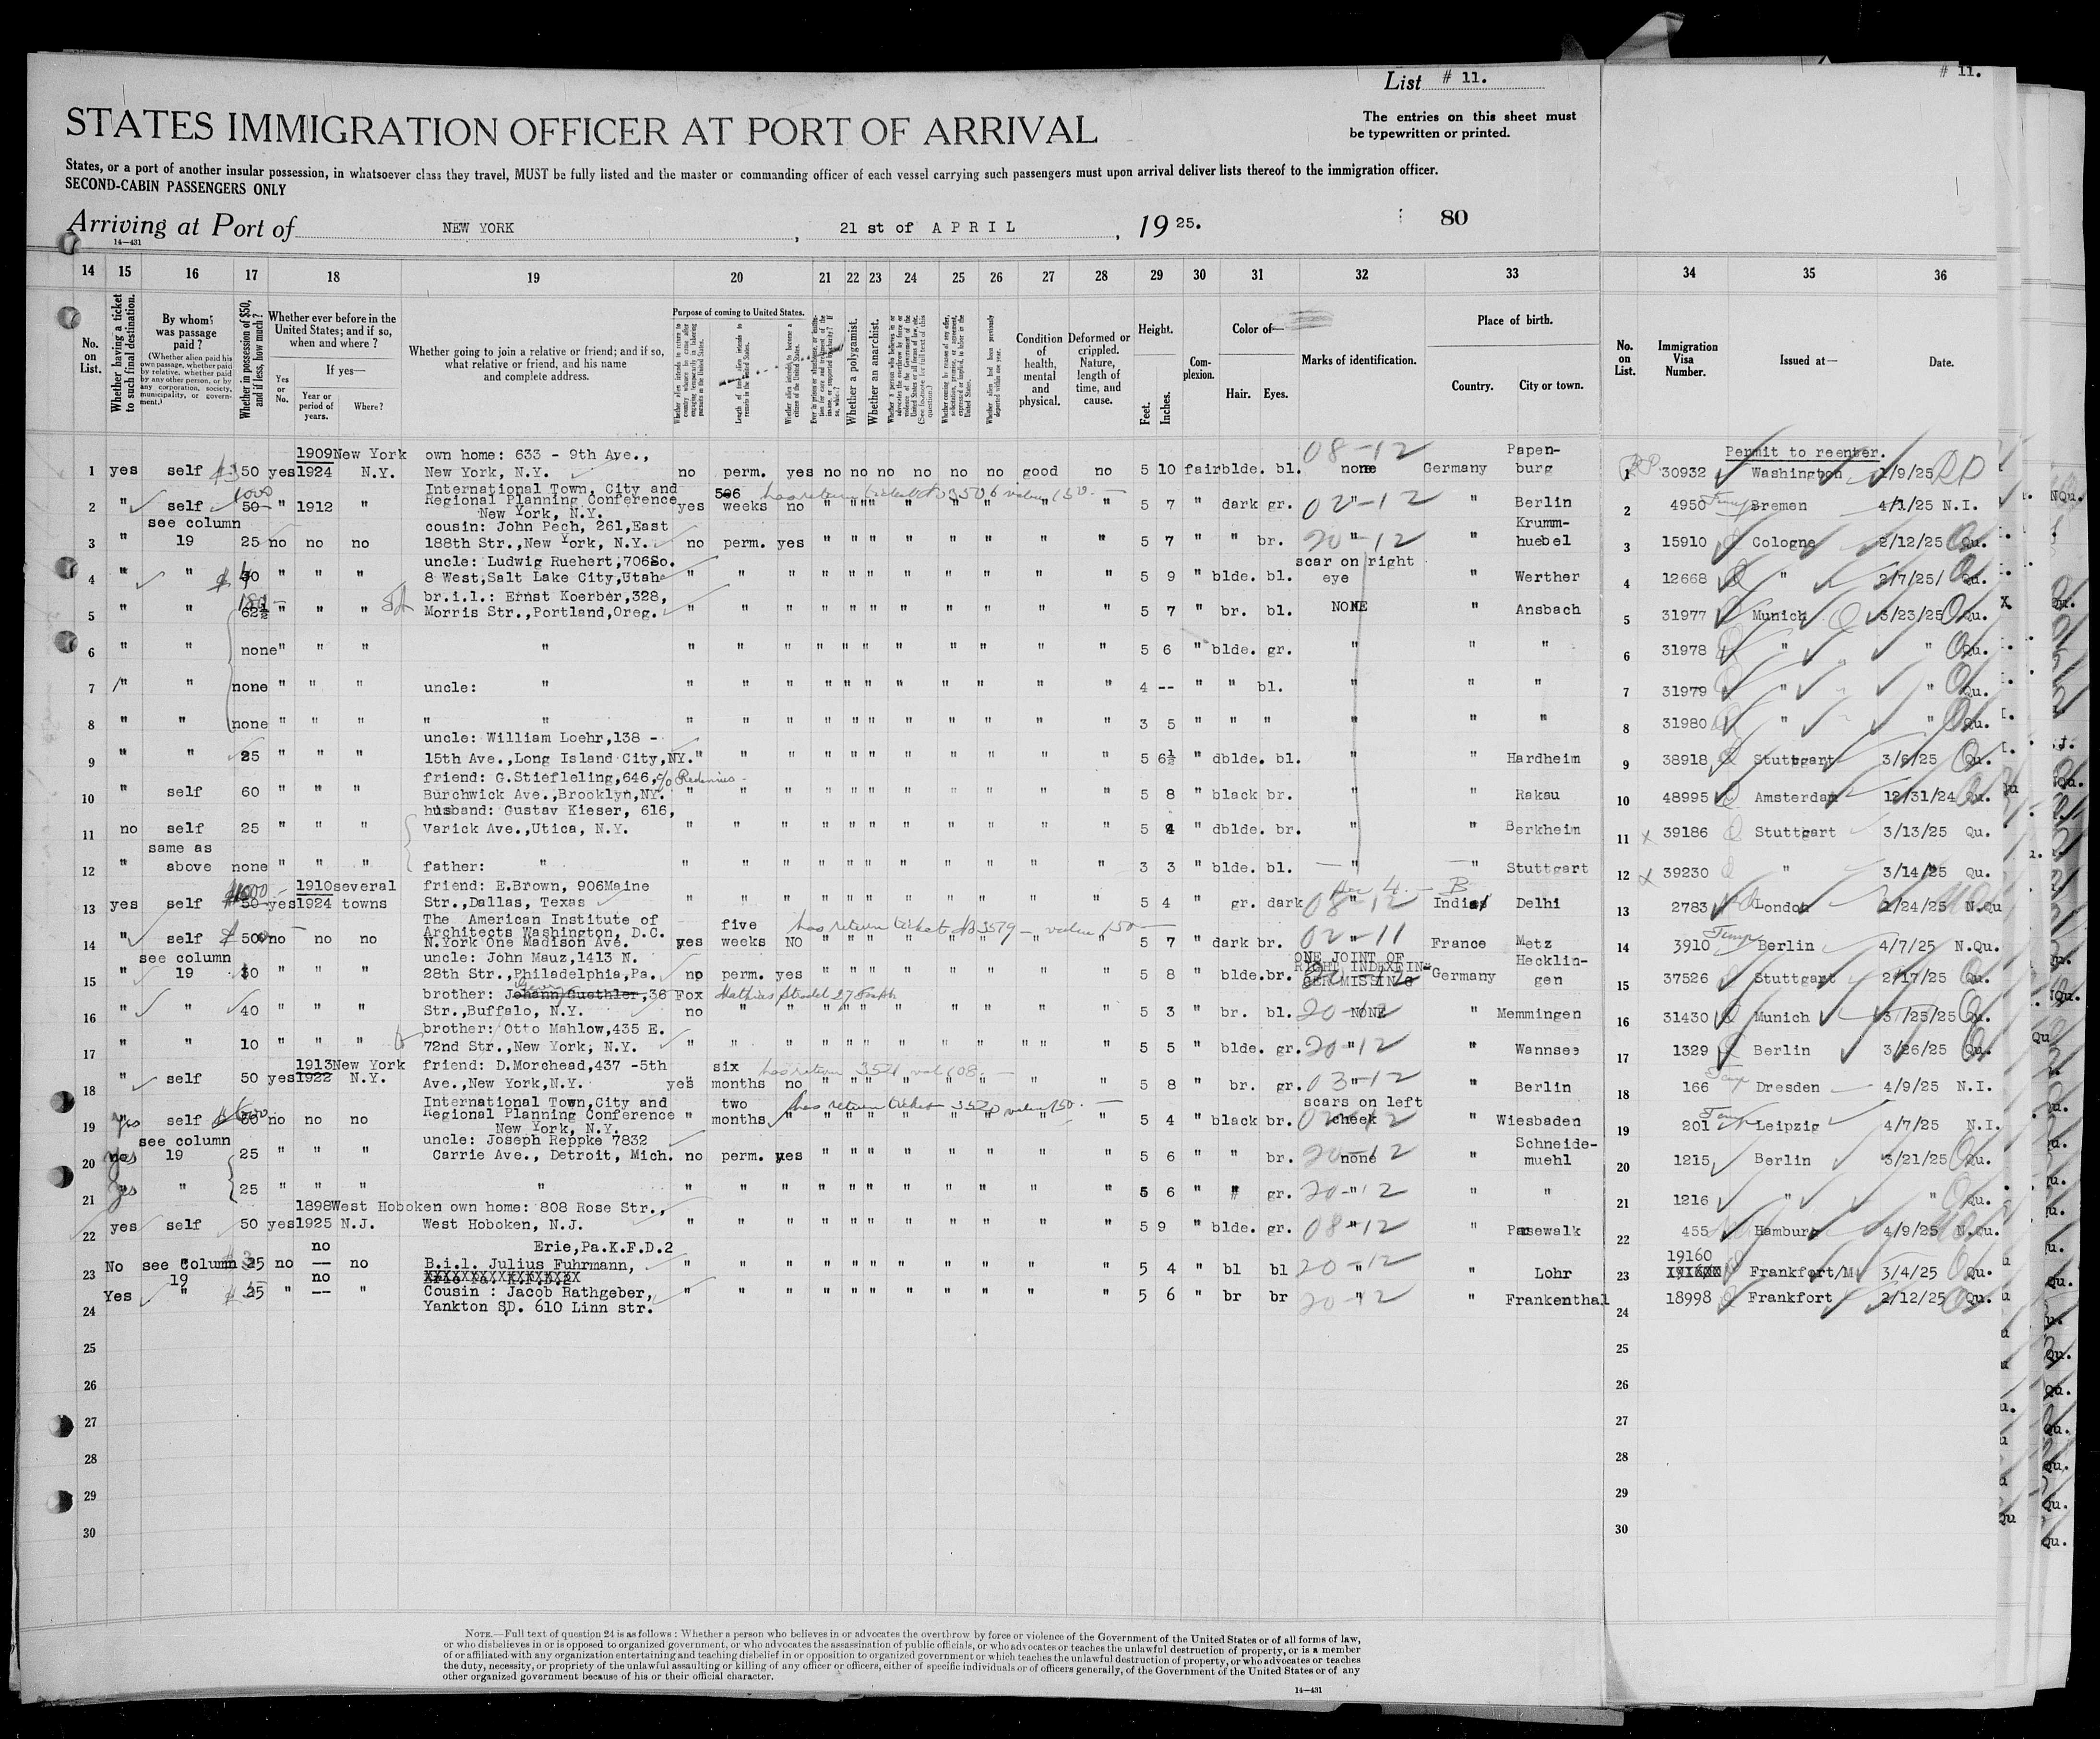 List # 11.
# 11.
STATES IMMIGRATION OFFICER AT PORT OF ARRIVAL
The entries on this sheet must
be typewritten or printed.
States, or a port of another insular possession, in whatsoever class they travel, MUST be fully listed and the master or commanding officer of each vessel carrying such passengers must upon arrival deliver lists thereof to the immigration officer.
SECOND-CABIN PASSENGERS ONLY
Arriving at Port of NEW YORK, 21 st of APRIL, 1925.
80
14—431
14 15 16 17 18 19 20 21 22 23 24 25 26 27 28 29 30 31 32 33 34 35 36
No. on List.
Whether having a ticket to such final destination.
By whom was passage paid?
(Whether alien paid his own passage, whether paid by relative, whether paid by any other person, or by any corporation, society, municipality, or government.)
Whether in possession of $50, and if less, how much?
Whether ever before in the United States; and if so, when and where?
Yes or No.
If yes—
Year or period of years.
Where?
Whether going to join a relative or friend; and if so, what relative or friend, and his name and complete address.
Purpose of coming to United States.
Whether alien intends to return to country whence he came after engaging temporarily in laboring pursuits in the United States.
Length of time alien intends to remain in the United States.
Whether alien intends to become a citizen of the United States.
Whether a polygamist.
Whether an anarchist.
Condition of health, mental and physical.
Deformed or crippled. Nature, length of time, and cause.
Height.
Feet.
Inches.
Complexion.
Color of—
Hair.
Eyes.
Marks of identification.
Place of birth.
Country.
City or town.
No. on List.
Immigration Visa Number.
Issued at—
Date.
1909 New York own home: 633 - 9th Ave., 08-12 Papen- Permit to reenter.
1 yes self 50 yes 1924 N.Y. New York, N.Y. no perm. yes no no no no no no good no 5 10 fair blde. bl. none Germany burg 1 30932 Washington 1/9/25
International Town, City and has return ticket
2 " self 50 " 1912 " Regional Planning Conference yes weeks no " " " " " " " " 5 7 dark gr. 02-12 " Berlin 2 4950 Bremen 4/1/25 N.I.
New York, N.Y.
see column cousin: John Pech, 261, East Krumm-
3 " 19 25 no no no 188th Str., New York, N.Y. no perm. yes " " " " " " " " 5 7 " " br. 20-12 " huebel 3 15910 Cologne 2/12/25 Qu.
uncle: Ludwig Ruehert, 706So. scar on right
4 " " " " " 8 West, Salt Lake City, Utah " " " " " " " " " " " 5 9 " blde. bl. eye " Werther 4 12668 " 2/7/25 Qu.
br.i.l.: Ernst Koerber, 328,
5 " " 62½ " " " Morris Str., Portland, Oreg. " " " " " " " " " " " 5 7 " br. bl. NONE " Ansbach 5 31977 Munich 3/23/25 Qu.
6 " " none " " " " " " " " " " " " " " " " 5 6 " blde. gr. " " " 6 31978 " " Qu.
7 " " none " " " uncle: " " " " " " " " " " " " " 4 -- " " bl. " " " 7 31979 " " Qu.
8 " " none " " " " " " " " " " " " " " " " " 3 5 " " " " " " 8 31980 " " Qu.
uncle: William Loehr, 138 -
9 " " 25 " " " 15th Ave., Long Island City, NY. " " " " " " " " " " " 5 6½ " dblde. bl. " Hardheim 9 38918 Stuttgart 3/6/25 Qu.
friend: G.Stiefleling, 646, c/o Redenius
10 " self 60 " " " Burchwick Ave., Brooklyn, NY. " " " " " " " " " " " 5 8 " black br. " " Rakau 10 48995 Amsterdam 12/31/24 Qu.
husband: Gustav Kieser, 616,
11 no self 25 " " " Varick Ave., Utica, N.Y. " " " " " " " " " " " 5 4 " dblde. br. " " Berkheim 11 39186 Stuttgart 3/13/25 Qu.
same as
12 " above none " " " father: " " " " " " " " " " " " 3 3 " blde. bl. " " Stuttgart 12 39230 " 3/14/25 Qu.
1910 several friend: E.Brown, 906Maine
13 yes self 50 yes 1924 towns Str., Dallas, Texas " " " " " " " " " " " 5 4 " gr. dark 08-12 India Delhi 13 2783 London 2/24/25 N.Qu
The American Institute of five has return ticket
Architects Washington, D.C.
14 " self 50 no no no N.York One Madison Ave. yes weeks NO " " " " " " " " 5 7 " dark br. 02-11 France Metz 14 3910 Berlin 4/7/25 N.Qu.
see column uncle: John Mauz, 1413 N. ONE JOINT OF Hecklin-
15 " 19 " " " 28th Str., Philadelphia, Pa. no perm. yes " " " " " " " " 5 8 " blde. br. RIGHT INDEXFIN- Germany gen 15 37526 Stuttgart 2/17/25 Qu.
GER MISSING
brother: Johann Guethler, 36 Fox
16 " " 40 " " " Str., Buffalo, N.Y. no " " " " " " " " " " 5 3 " br. bl. 20-12 NONE " Memmingen 16 31430 Munich 3/25/25 Qu.
brother: Otto Mahlow, 435 E.
17 " " 10 " " " 72nd Str., New York, N.Y. " " " " " " " " " " " 5 5 " blde. gr. 20-12 " Wannsee 17 1329 Berlin 3/26/25 Qu.
1913 New York friend: D.Morchead, 437 -5th six
18 " self 50 yes 1922 N.Y. Ave., New York, N.Y. yes months no " " " " " " " " 5 8 " br. gr. 03-12 " Berlin 18 166 Dresden 4/9/25 N.I.
International Town, City and two has return ticket 3520 value 150. scars on left
19 yes self no no no Regional Planning Conference " months " " " " " " " " 5 4 " black br. cheek " Wiesbaden 19 201 Leipzig 4/7/25 N.I.
New York, N.Y.
see column uncle: Joseph Reppke 7832 Schneide-
20 yes 19 25 " " " Carrie Ave., Detroit, Mich. no perm. yes " " " " " " " " 5 6 " " br. 20-12 none " muehl 20 1215 Berlin 3/21/25 Qu.
21 yes " 25 " " " " " " " " " " " " " " " " 5 6 " " gr. 20-12 " " 21 1216 " " Qu.
1898 West Hoboken own home: 808 Rose Str.,
22 yes self 50 yes 1925 N.J. West Hoboken, N.J. " " " " " " " " " " " 5 9 " blde. gr. 08-12 " Pasewalk 22 455 Hamburg 4/9/25 N.Qu.
no Erie, Pa.K.F.D.2 19160
23 No see Column 25 no -- no B.i.l. Julius Fuhrmann, " " " " " " " " " " " 5 4 " bl bl 20-12 " Lohr 23 Frankfort/M 3/4/25 Qu.
19 no
24 Yes " " -- " Cousin : Jacob Rathgeber, " " " " " " " " " " " 5 6 " br br 20-12 " Frankenthal 24 18998 Frankfort 2/12/25 Qu.
Yankton SD. 610 Linn str.
25 25
26 26
27 27
28 28
29 29
30 30
NOTE.—Full text of question 24 is as follows: Whether a person who believes in or advocates the overthrow by force or violence of the Government of the United States or of all forms of law,
or who disbelieves in or is opposed to organized government, or who advocates the assassination of public officials, or who advocates or teaches the unlawful destruction of property, or is a member
of or affiliated with any organization entertaining and teaching disbelief in or opposition to organized government or which teaches the unlawful destruction of property, or who advocates or teaches
the duty, necessity, or propriety of the unlawful assaulting or killing of any officer or officers, either of specific individuals or of officers generally, of the Government of the United States or of any
other organized government because of his or their official character.
14—431